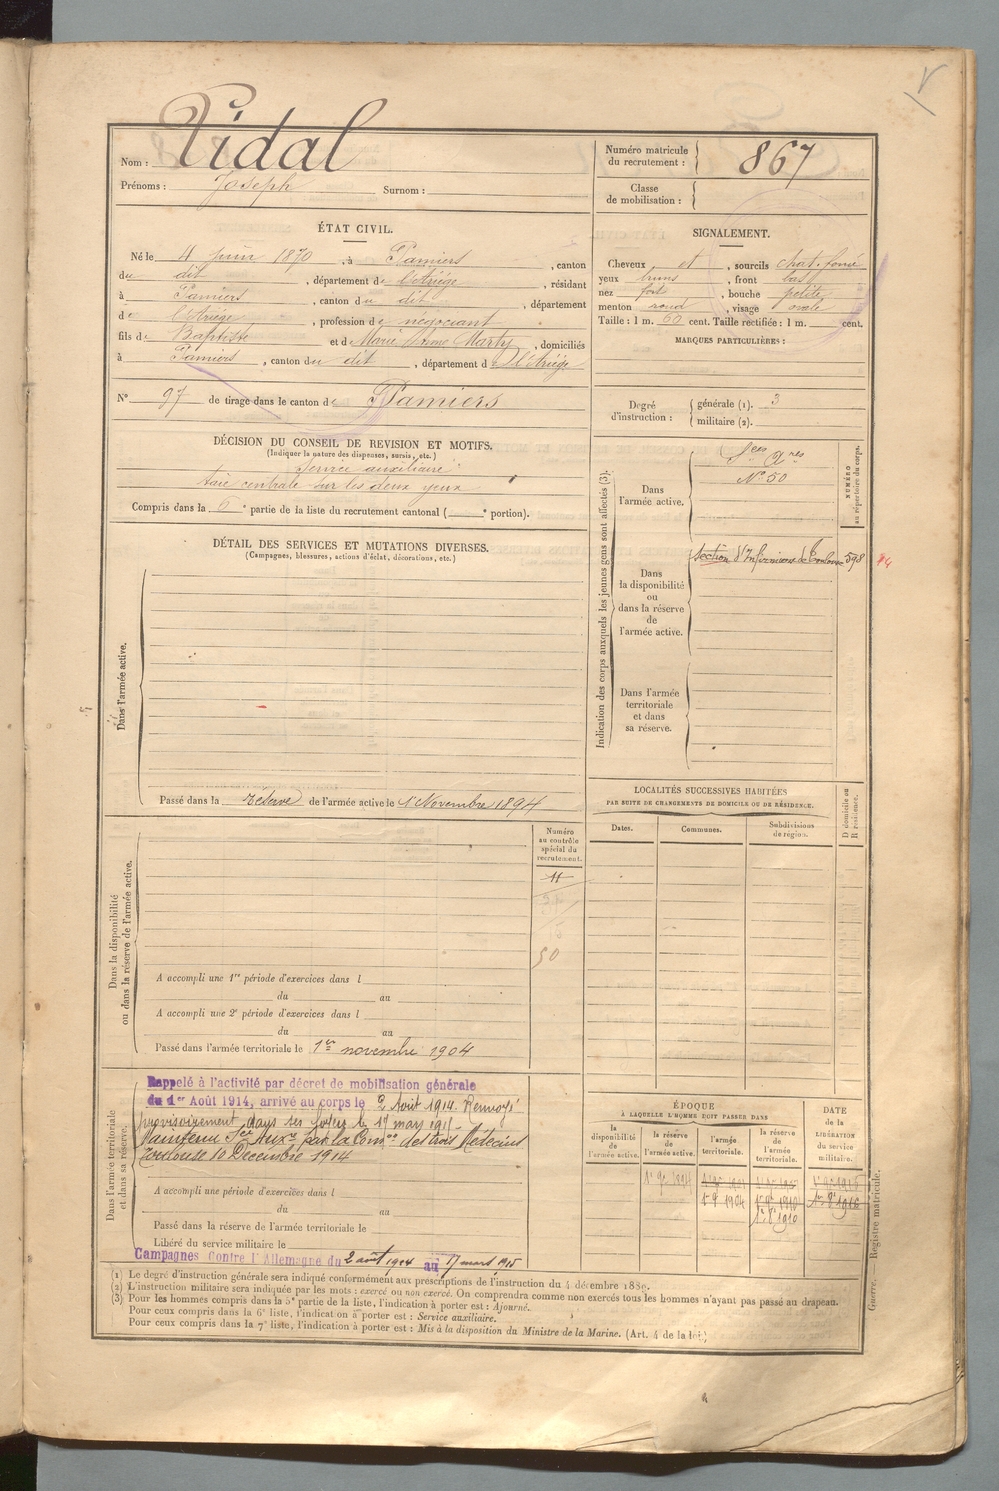 Nom : Vidal
Prénoms : Joseph Surnom :
Numéro matricule
du recrutement : 867
Classe
de mobilisation :
ÉTAT CIVIL.
Né le 4 juin 1870, à Pamiers, canton
du dit, département de l'Ariège, résidant
à Pamiers, canton du dit, département
de l'Ariège, profession de négociant
fils de Baptiste et de Marie Anne Marty, domiciliés
à Pamiers, canton du dit, département d l'Ariège
N° 97 de tirage dans le canton de Pamiers
SIGNALEMENT.
Cheveux et, sourcils chat. foncé
yeux bruns, front bas
nez fort, bouche petite
menton rond, visage ovale
Taille : 1 m. 60 cent. Taille rectifiée : 1 m. cent.
MARQUES PARTICULIÈRES :
Degré
d'instruction :
générale (1). 3
militaire (2).
DÉCISION DU CONSEIL DE REVISION ET MOTIFS.
(Indiquer la nature des dispenses, sursis, etc.)
Service auxiliaire
taie centrale sur les deux yeux
Compris dans la 6e partie de la liste du recrutement cantonal ( e portion).
DÉTAIL DES SERVICES ET MUTATIONS DIVERSES.
(Campagnes, blessures, actions d'éclat, décorations, etc.)
Dans l'armée active.
Passé dans la réserve de l'armée active le 1er Novembre 1894
Indication des corps auxquels les jeunes gens sont affectés (3).
Dans
l'armée active.
Ses Ares
N° 50
NUMÉRO
au répertoire du corps.
Dans
la disponibilité
ou
dans la réserve
de
l'armée active.
Section d'Infirmiers de Toulouse 598
Dans l'armée
territoriale
et dans
sa réserve.
LOCALITÉS SUCCESSIVES HABITÉES
PAR SUITE DE CHANGEMENTS DE DOMICILE OU DE RÉSIDENCE.
Dates.
Communes.
Subdivisions
de région.
D domicile ou
R résidence.
Dans la disponibilité
ou dans la réserve de l'armée active.
Numéro
au contrôle
spécial du
recrutement.
11
50
A accompli une 1re période d'exercices dans l
du au
A accompli une 2e période d'exercices dans l
du au
Passé dans l'armée territoriale le 1er novembre 1904
Dans l'armée territoriale
et dans sa réserve.
Rappelé à l'activité par décret de mobilisation générale
du 1er Août 1914, arrivé au corps le 2 Août 1914. Renvoyé
provisoirement dans ses foyers le 17 mars 1915
Maintenu Sce Auxre par la Comon des trois Médecins
Toulouse 10 Décembre 1914
A accompli une période d'exercices dans l
du au
Passé dans la réserve de l'armée territoriale le
Libéré du service militaire le
Campagnes Contre l'Allemagne du 2 août 1914 au 17 mars 1915
ÉPOQUE
À LAQUELLE L'HOMME DOIT PASSER DANS
la
disponibilité
de
l'armée active.
la réserve
de
l'armée active.
l'armée
territoriale.
la réserve
de
l'armée
territoriale.
DATE
de la
LIBÉRATION
du service
militaire.
1er 9e 1894
1er 9e 1904 1er 9e 1910
1er 8e 1910
Guerre. Registre matricule.
(1) Le degré d'instruction générale sera indiqué conformément aux prescriptions de l'instruction du 4 décembre 1889.
(2) L'instruction militaire sera indiquée par les mots : exercé ou non exercé. On comprendra comme non exercés tous les hommes n'ayant pas passé au drapeau.
(3) Pour les hommes compris dans la 5e partie de la liste, l'indication à porter est : Ajourné.
Pour ceux compris dans la 6e liste, l'indication à porter est : Service auxiliaire.
Pour ceux compris dans la 7e liste, l'indication à porter est : Mis à la disposition du Ministre de la Marine. (Art. 4 de la loi.)